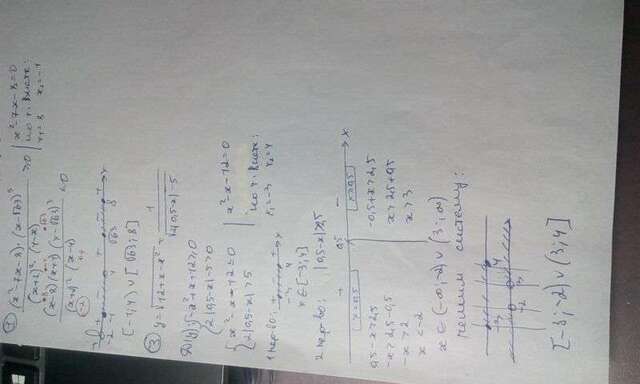 (x²-7x-8)·(x-√63)³
(x+2)²·(4-x) ≥0 | x²-7x-8=0
по т. Виета:
x₁=8 x₂=-1
(x-8)(x+1)(x-√63)³
(x+2)²(x-4) ≤0
-2 -1 4 √63 8 x
[-1;4) ∪ [√63;8]
③ y=√12+x-x² + 1/√2|0,5-x|-5
D(y): {-x²+x+12≥0
2|0,5-x|-5>0
{x²-x-12≤0 | x²-x-12=0
2|0,5-x|>5 по т. Виета:
x₁=-3 x₂=4
1 нер-во: + - +
-3 4 x
x∈[-3;4]
2 нер-во: |0,5-x|>2,5
+ 0,5 - x
0,5-x>2,5 -0,5+x>2,5
-x>2,5-0,5 x>2,5+0,5
-x>2 x>3
x<-2
x∈(-∞;-2)∪(3;∞)
решим систему:
-3 4
-2 3
[-3;-2)∪(3;4]